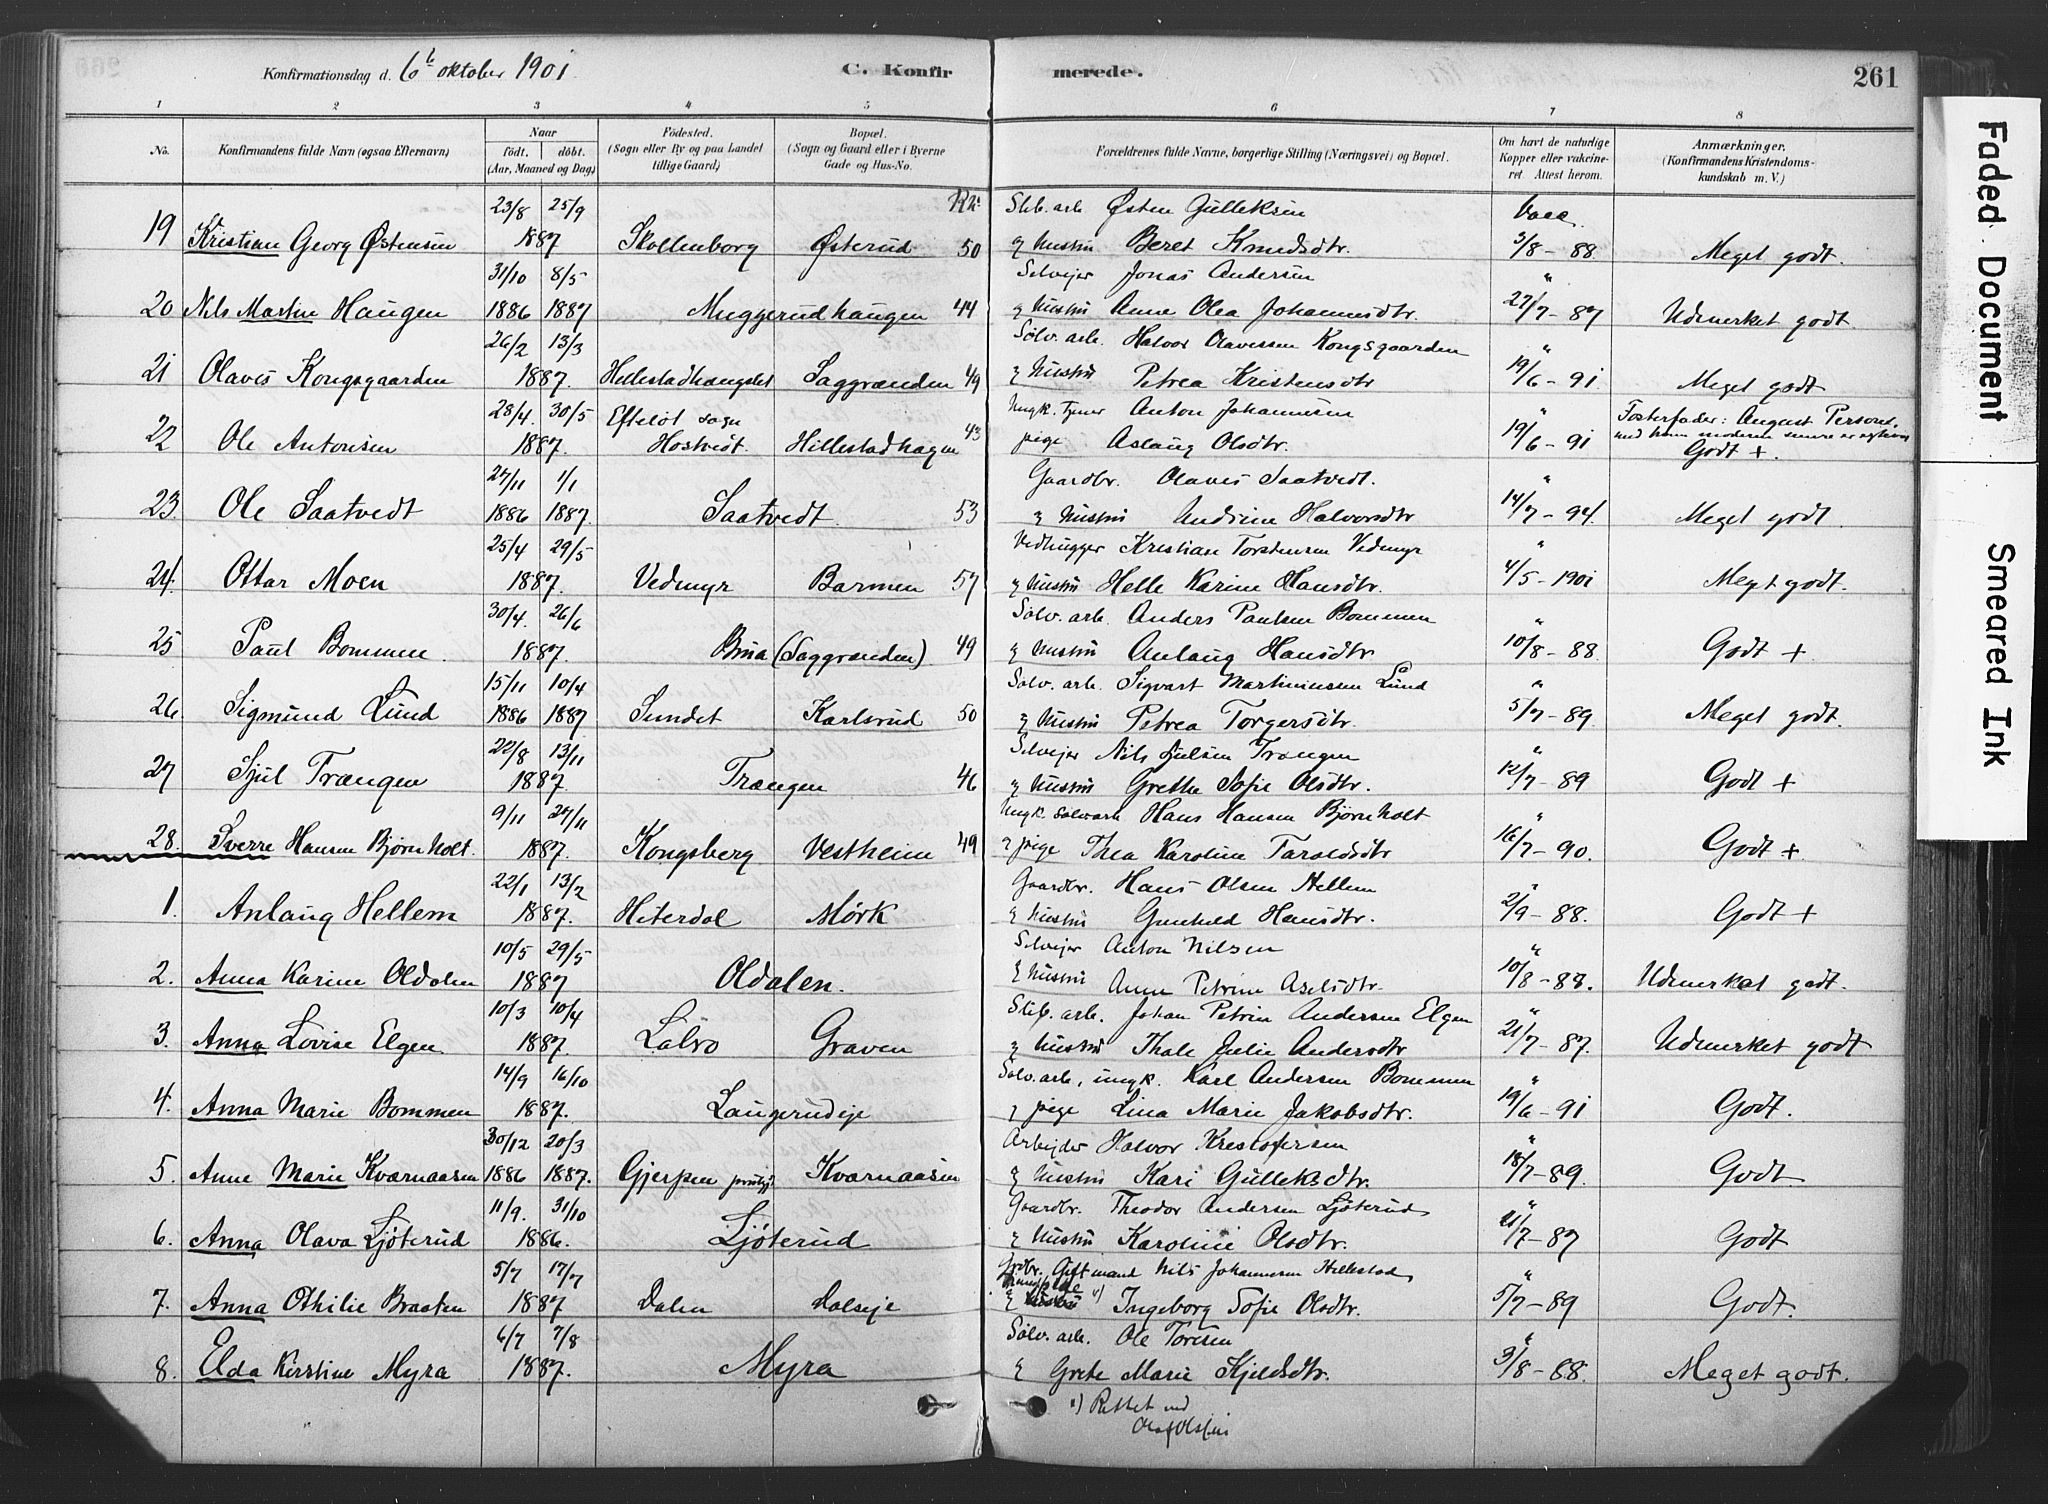 Konfirmationsdag d. 6te oktober 1901. C. Konfirmerede. 261
1 2 3 4 5 6 7 8
No. Konfirmandens fulde Navn (ogsaa Efternavn) Naar födt. döbt. (Aar, Maaned og Dag) Födested. (Sogn eller By og paa Landet tillige Gaard) Bopæl. (Sogn og Gaard eller i Byerne Gade og Hus-No. Forældrenes fulde Navne, borgerlige Stilling (Næringsvei) og Bopæl. Om havt de naturlige Kopper eller vakcineret. Attest herom. Anmærkninger. (Konfirmandens Kristendomskundskab m. V.)
23/8 25/9 Stib. arb Østen Gulleksen Vacc.
19 Kristian Georg Østensen 1887 Skollenborg Østerud 50 & hustru Beret Knudsdtr. 3/8 - 88. Meget godt.
31/10 8/5 Selvejer Jonas Andersen "
20 Nils Martin Haugen 1886 1887 Muggerudhaugen 44 & hustru Anne Olea Johannesdtr. 27/7 - 87 Udmerket godt
26/2 13/3 Sølv. arb. Halvor Olavessen Kongsgaarden "
21 Olaves Kongsgaarden 1887. Saggrænden 49 & hustru Petrea Kristensdtr 19/6 - 91. Meget godt
28/4. 30/5 Efteløt sogn Ungk. tjener Anton Johannesen " Fosterfader: August Persons,
22 Ole Antonsen 1887. Hostvedt. Hillestadhagen 43 pige Aslaug Olsdtr. 19/6 - 91 Godt +.
27/11 1/1 Gaardbr. Olaves Saatvedt. "
23. Ole Saatvedt 1886 1887. Saatvedt. 53 & hustru Andrine Halvorsdtr 14/7 - 94. Meget godt.
25/4 29/5 Vedhugger Kristian Torstensen Vedmyr "
24. Ottar Moen 1887. Vedmyr Barmen 57 & hustru Helle Karine Hansdtr. 4/5 - 1901 Meget godt.
30/4. 26/6 Sølv. arb. Anders Paulsen Bommen "
25 Paul Bommen. 1887. (Saggrænden) 49 & hustru Anlaug Hansdtr. 10/8 - 88. Godt +
15/11 10/4 Sølv. arb. Sigvart Martininsen Lund "
26 Sigmund Lund 1886 1887 Sundet Karlsrud 50 & hustru Petrea Torgersdtr. 5/7 - 89. Meget godt.
22/8 13/11 Selvejer Nils Sjulsen Trængen "
27 Sjul Trængen 1887 Trængen 46 & hustru Grethe Sofie Olsdtr. 12/7 - 89 Godt +
9/11 27/11 Ungk. sølvarb Hans Hansen Bjørnholt "
28. Sverre Hansen Bjørnholt. 1887. Kongsberg Vestheim 49 & pige Thea Karoline Taroldsdtr 16/7 - 90. Godt +
22/1 13/2 Gaardbr. Hans Olsen Hellem "
1. Anlaug Hellem 1887. Hiterdal Mørk & hustru Gunhild Hansdtr. 2/9 - 88. Godt +
10/5 29/5 Selvejer Anton Nilsen "
2. Anna Karine Oldalen 1887 Oldalen. & hustru Anne Petrine Axelsdtr. 10/8 - 88. Udmerket godt.
10/3 10/4 Stib. arb. Johan Petrin Andersen Elgen "
3. Anna Lovise Elgen. 1887. Labro Graven & hustru Thale Julie Andersdtr 21/7 - 87. Udmerket godt
14/9 16/10 Sølv. arb, ungk. Karl Andersen Bommen "
4. Anna Marie Bommen 1887. Laugerudeje & pige Lina Marie Jakobsdtr. 19/6 - 91 Godt.
30/12 20/3 Arbejder Halvor Kristofersen "
5. Anne Marie Kværnaasen 1886 1887. Gjerpen Kværnaasen & hustru Kari Gulleksdtr. 18/7 - 89. Godt
11/9. 31/10 Gaardbr. Theodor Andersen Ljøterud "
6. Anna Olava Ljøterud 1886. Ljøterud & hustru Karoline Olsdtr. 21/7 - 87 Godt
5/7 17/7 Grdbr. Gift mand Nils Johannesen Hellestad "
7. Anna Othilie Braaten 1887 Dalen Dalseje & pige ") Ingeborg Sofie Olsdtr. 5/7 - 89 Godt.
6/7 7/8 Sølv. arb. Ole Toresen "
8. Elda Kirstine Myra 1887. Myra & Grete Marie Kjeldsdtr. 3/8 - 88. Meget godt.
") Rettet ved
Faded Document Smeared Ink